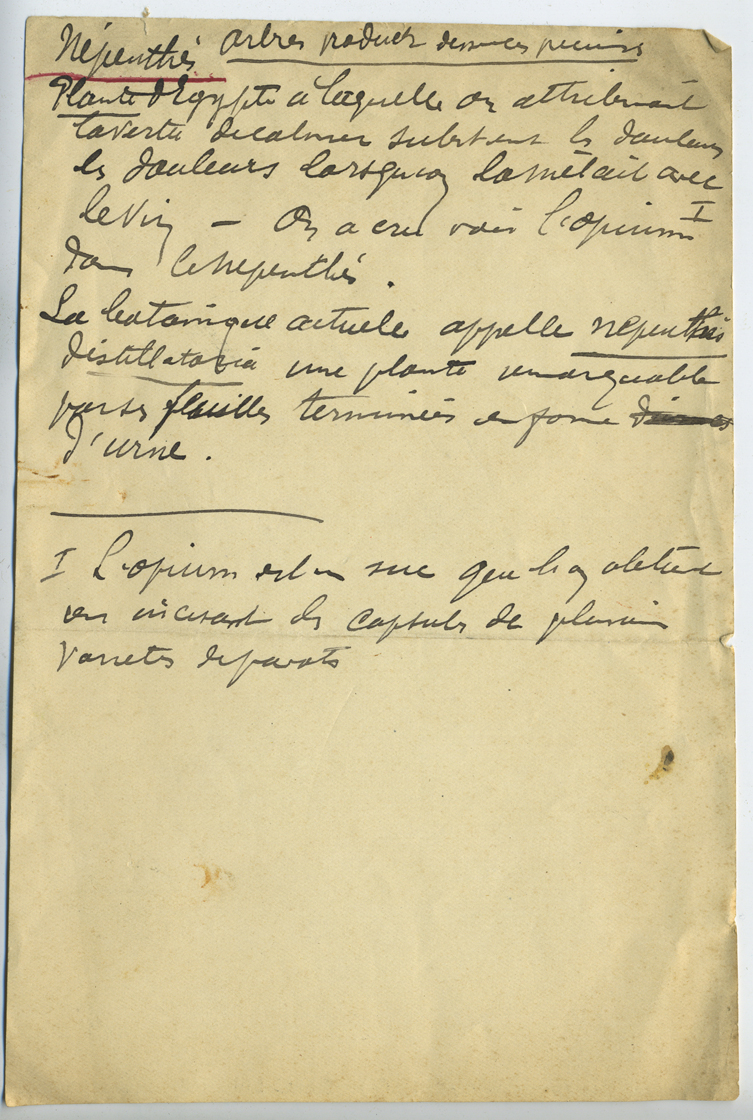 Népenthès arbres produit
Plante d'Egypte à laquelle on attribuait
la vertu de calmer subitement les douleurs
les douleurs lorsqu'on la mêlait avec
le vin — On a cru voir l'opium I
dans le nepenthès.
La botanique actuelle appelle nepenthès
distillatoria une plante remarquable
par ses feuilles terminées en forme
d'urne.
I L'opium est un suc que l'on obtient
en incisant les capsules de plusieurs
variétés de pavots